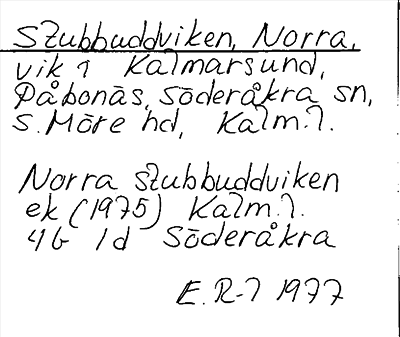 Stubbuddviken, Norra,
vik i Kalmarsund,
Påbonäs, Söderåkra sn,
S. Möre hd, Kalm. l.
Norra Stubbuddviken
ek (1975) Kalm. l.
4G 1d Söderåkra
E. R-l 1977